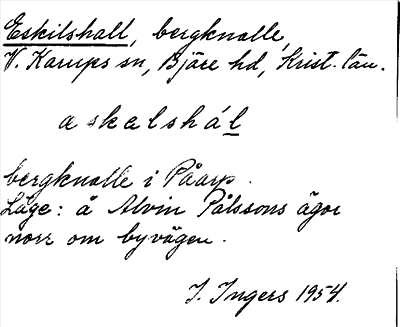 Eskilshall, bergknalle,
V. Karups sn, Bjäre hd, Krist. län.
askalshál
bergknalle i Påarp.
Läge: å Alvin Pålssons ägor
norr om byvägen.
I. Ingers 1954.